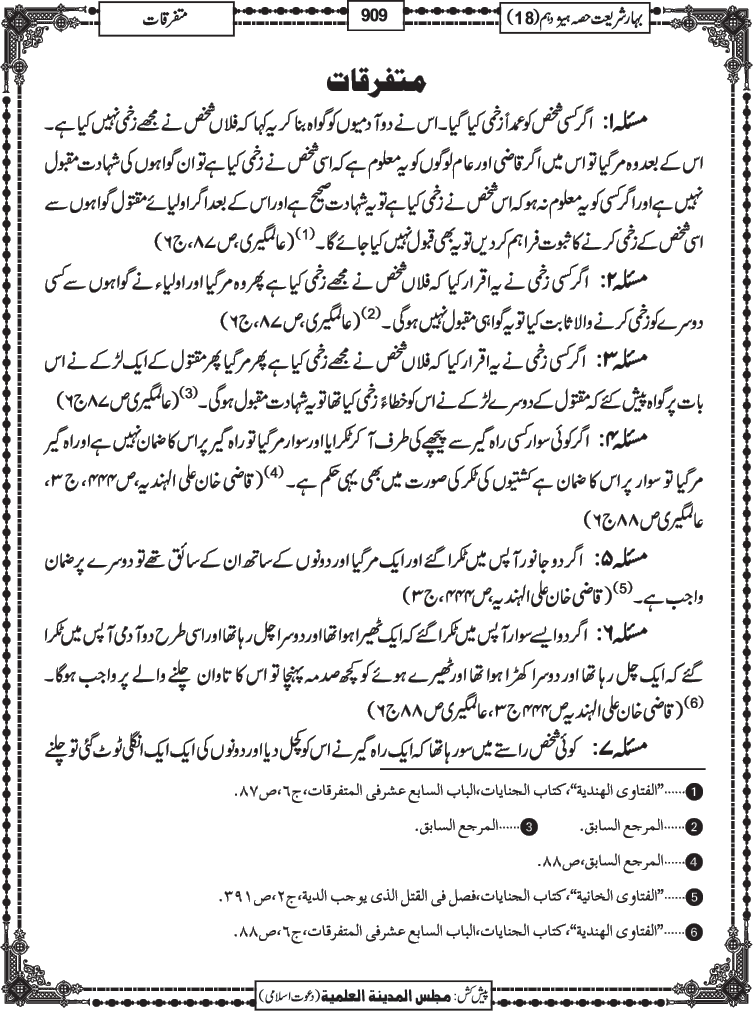 بہار شریعت حصہ ہیژدہم (18)
909
متفرقات
متفرقات
مسئلہ ۱: اگر کسی شخص کو عمداً زخمی کیا گیا۔ اس نے دو آدمیوں کو گواہ بنا کر یہ کہا کہ فلاں شخص نے مجھے زخمی نہیں کیا ہے۔
اس کے بعد وہ مر گیا تو اس میں اگر قاضی اور عام لوگوں کو یہ معلوم ہے کہ اسی شخص نے زخمی کیا ہے تو ان گواہوں کی شہادت مقبول
نہیں ہے اور اگر کسی کو یہ معلوم نہ ہو کہ اس شخص نے زخمی کیا ہے تو یہ شہادت صحیح ہے اور اس کے بعد اگر اولیائے مقتول گواہوں سے
اسی شخص کے زخمی کرنے کا ثبوت فراہم کر دیں تو یہ بھی قبول نہیں کیا جائے گا۔ (1) (عالمگیری، ص ۸۷، ج ۶)
مسئلہ ۲: اگر کسی زخمی نے یہ اقرار کیا کہ فلاں شخص نے مجھے زخمی کیا ہے پھر وہ مر گیا اور اولیاء نے گواہوں سے کسی
دوسرے کو زخمی کرنے والا ثابت کیا تو یہ گواہی مقبول نہیں ہوگی۔ (2) (عالمگیری، ص ۸۷، ج ۶)
مسئلہ ۳: اگر کسی زخمی نے یہ اقرار کیا کہ فلاں شخص نے مجھے زخمی کیا ہے پھر مر گیا پھر مقتول کے ایک لڑکے نے اس
بات پر گواہ پیش کئے کہ مقتول کے دوسرے لڑکے نے اس کو خطاءً زخمی کیا تھا تو یہ شہادت مقبول ہوگی۔ (3) (عالمگیری ص ۸۷ ج ۶)
مسئلہ ۴: اگر کوئی سوار کسی راہ گیر سے پیچھے کی طرف آ کر ٹکرایا اور سوار مر گیا تو راہ گیر پر اس کا ضمان نہیں ہے اور راہ گیر
مر گیا تو سوار پر اس کا ضمان ہے کشتیوں کی ٹکر کی صورت میں بھی یہی حکم ہے۔ (4) (قاضی خان علی الہندیہ، ص ۴۴۴، ج ۳،
عالمگیری ص ۸۸ ج ۶)
مسئلہ ۵: اگر دو جانور آپس میں ٹکرا گئے اور ایک مر گیا اور دونوں کے ساتھ ان کے سائق تھے تو دوسرے پر ضمان
واجب ہے۔ (5) (قاضی خان علی الہندیہ، ص ۴۴۴، ج ۳)
مسئلہ ۶: اگر دو ایسے سوار آپس میں ٹکرا گئے کہ ایک ٹھیرا ہوا تھا اور دوسرا چل رہا تھا اور اسی طرح دو آدمی آپس میں ٹکرا
گئے کہ ایک چل رہا تھا اور دوسرا کھڑا ہوا تھا اور ٹھیرے ہوئے کو کچھ صدمہ پہنچا تو اس کا تاوان چلنے والے پر واجب ہوگا۔
(6) (قاضی خان علی الہندیہ ص ۴۴۴ ج ۳، عالمگیری ص ۸۸ ج ۶)
مسئلہ ۷: کوئی شخص راستے میں سو رہا تھا کہ ایک راہ گیر نے اس کو کچل دیا اور دونوں کی ایک ایک انگلی ٹوٹ گئی تو چلنے
1 ......"الفتاوی الهندیة"، کتاب الجنایات، الباب السابع عشر فی المتفرقات، ج٦، ص٨٧.
2 ......المرجع السابق. 3 ......المرجع السابق.
4 ......المرجع السابق، ص٨٨.
5 ......"الفتاوی الخانیة"، کتاب الجنایات، فصل فی القتل الذی یوجب الدیة، ج٢، ص٣٩١.
6 ......"الفتاوی الهندیة"، کتاب الجنایات، الباب السابع عشر فی المتفرقات، ج٦، ص٨٨.
پیش کش: مجلس المدینة العلمیة (دعوت اسلامی)